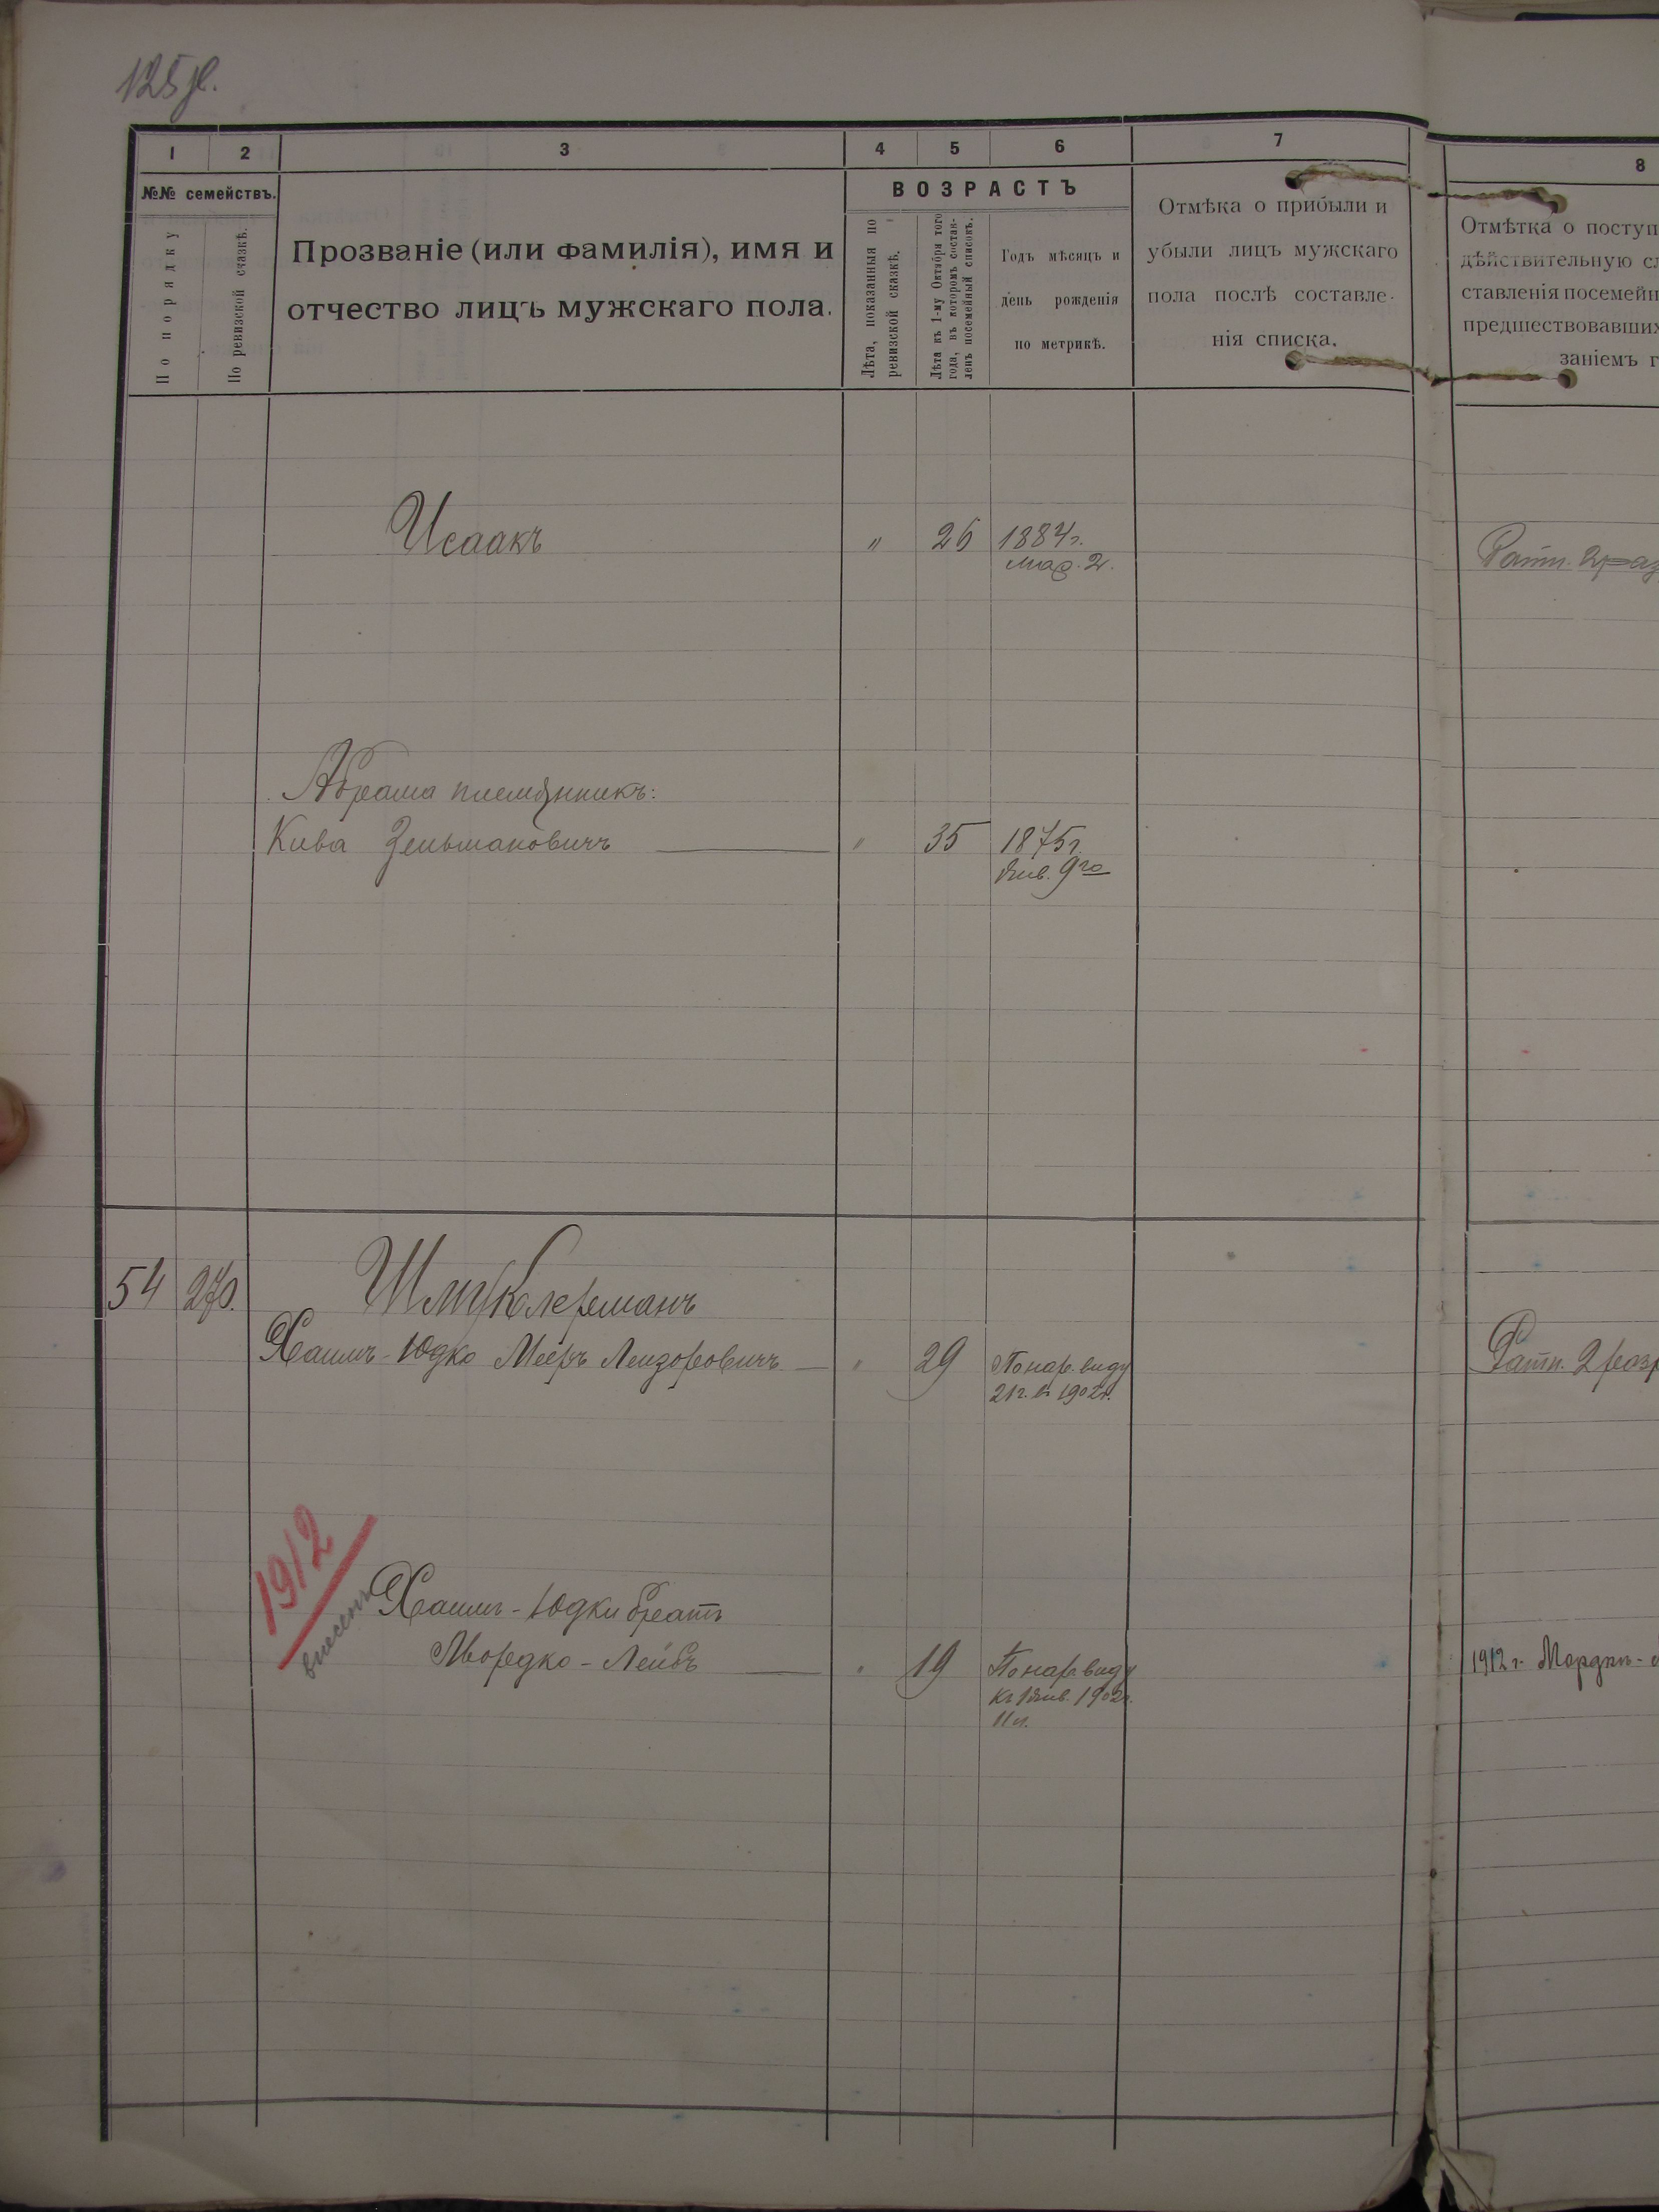 125 Л.
1 2 3 4 5 6 7 8
№№ семействъ.
По порядку
По ревизской сказкѣ.
Прозваніе (или фамилія), имя и
отчество лицъ мужскаго пола.
ВОЗРАСТЪ
Лѣта, показанныя по
ревизской сказкѣ.
Лѣта къ 1-му Октября того
года, въ которомъ состав-
ленъ посемейный списокъ.
Годъ мѣсяцъ и
день рожденія
по метрикѣ.
Отмѣка о прибыли и
убыли лицъ мужскаго
пола послѣ составле-
нія списка.
Отмѣтка о поступ
дѣйствительную сл
ставленія посемейн
предшествовавших
заніемъ г
Исаакъ " 26 1884 г.
2.
Ратн. 2 раз
Абрама племянникъ:
Кива Зельмановичъ " 35 1875 г.
Янв. 9го
54 270. Шмуклерманъ
Хаимъ-Юдко Меѣръ Лейзоровичъ " 29 По нар. виду
21 г. въ 1902 г.
Ратн. 2 разр
1912
внесенъ
Хаимъ-Юдки братъ
Мордко-Лейбъ " 19 По нар. виду
къ 1 Янв. 1902 г.
11 л.
1912 г. Мордко-